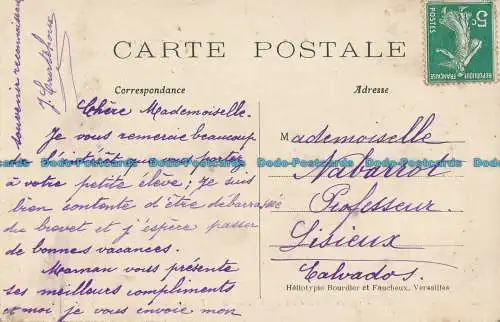 CARTE POSTALE
Correspondance
Chère Mademoiselle.
Je vous remercie beaucoup
de l'intérêt que vous portez
à votre petite élève; je suis
bien contente d'être débarrassée
du brevet et j'espère passer
de bonnes vacances.
Maman vous présente
ses meilleurs compliments
et moi je vous envoie mon
souvenir reconnaissant
Adresse
Mademoiselle
Nabarrot
Professeur
Lisieux
Calvados.
Héliotypie Bourdier et Faucheux, Versailles
5c
POSTES
REPUBLIQUE FRANÇAISE
Dodo-Postcards Dodo-Postcards Dodo-Postcards Dodo-Postcards